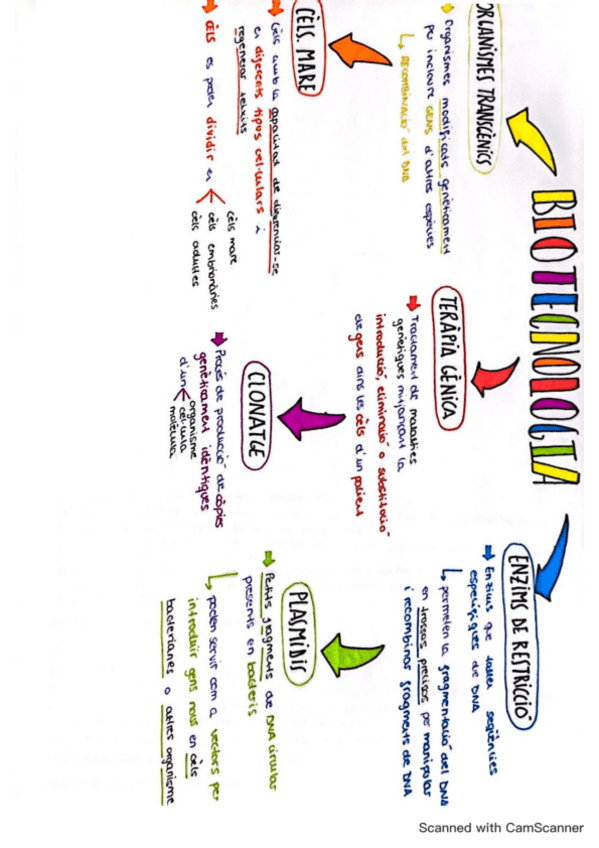 BIOTECNOLOGIA
ORGANISMES TRANSGÈNICS
Organismes modificats genèticament
per incloure GENS d'altres espècies
RECOMBINACIÓ del DNA
CÈLS. MARE
Cèls amb la capacitat de diferenciar-se
en diferents tipus cel·lulars i
regenerar teixits
CÈLS es poden dividir en
cèls mare
cèls embrionàries
cèls adultes
TERÀPIA GÈNICA
Tractament de malalties
genètiques mitjançant la
introducció, eliminació o substitució
de gens dins les cèls d'un pacient
CLONATGE
Procés de producció de còpies
genèticament idèntiques
d'un
organisme
cèl·lula
molècula
ENZIMS DE RESTRICCIÓ
Enzims que tallen seqüències
específiques de DNA
permeten la fragmentació del DNA
en trossos precisos per manipular
i recombinar fragments de DNA
PLASMIDIS
Petits fragments de DNA circular
presents en bacteris
poden servir com a vectors per
introduir gens nous en cèls
bacterianes o altres organisme
Scanned with CamScanner